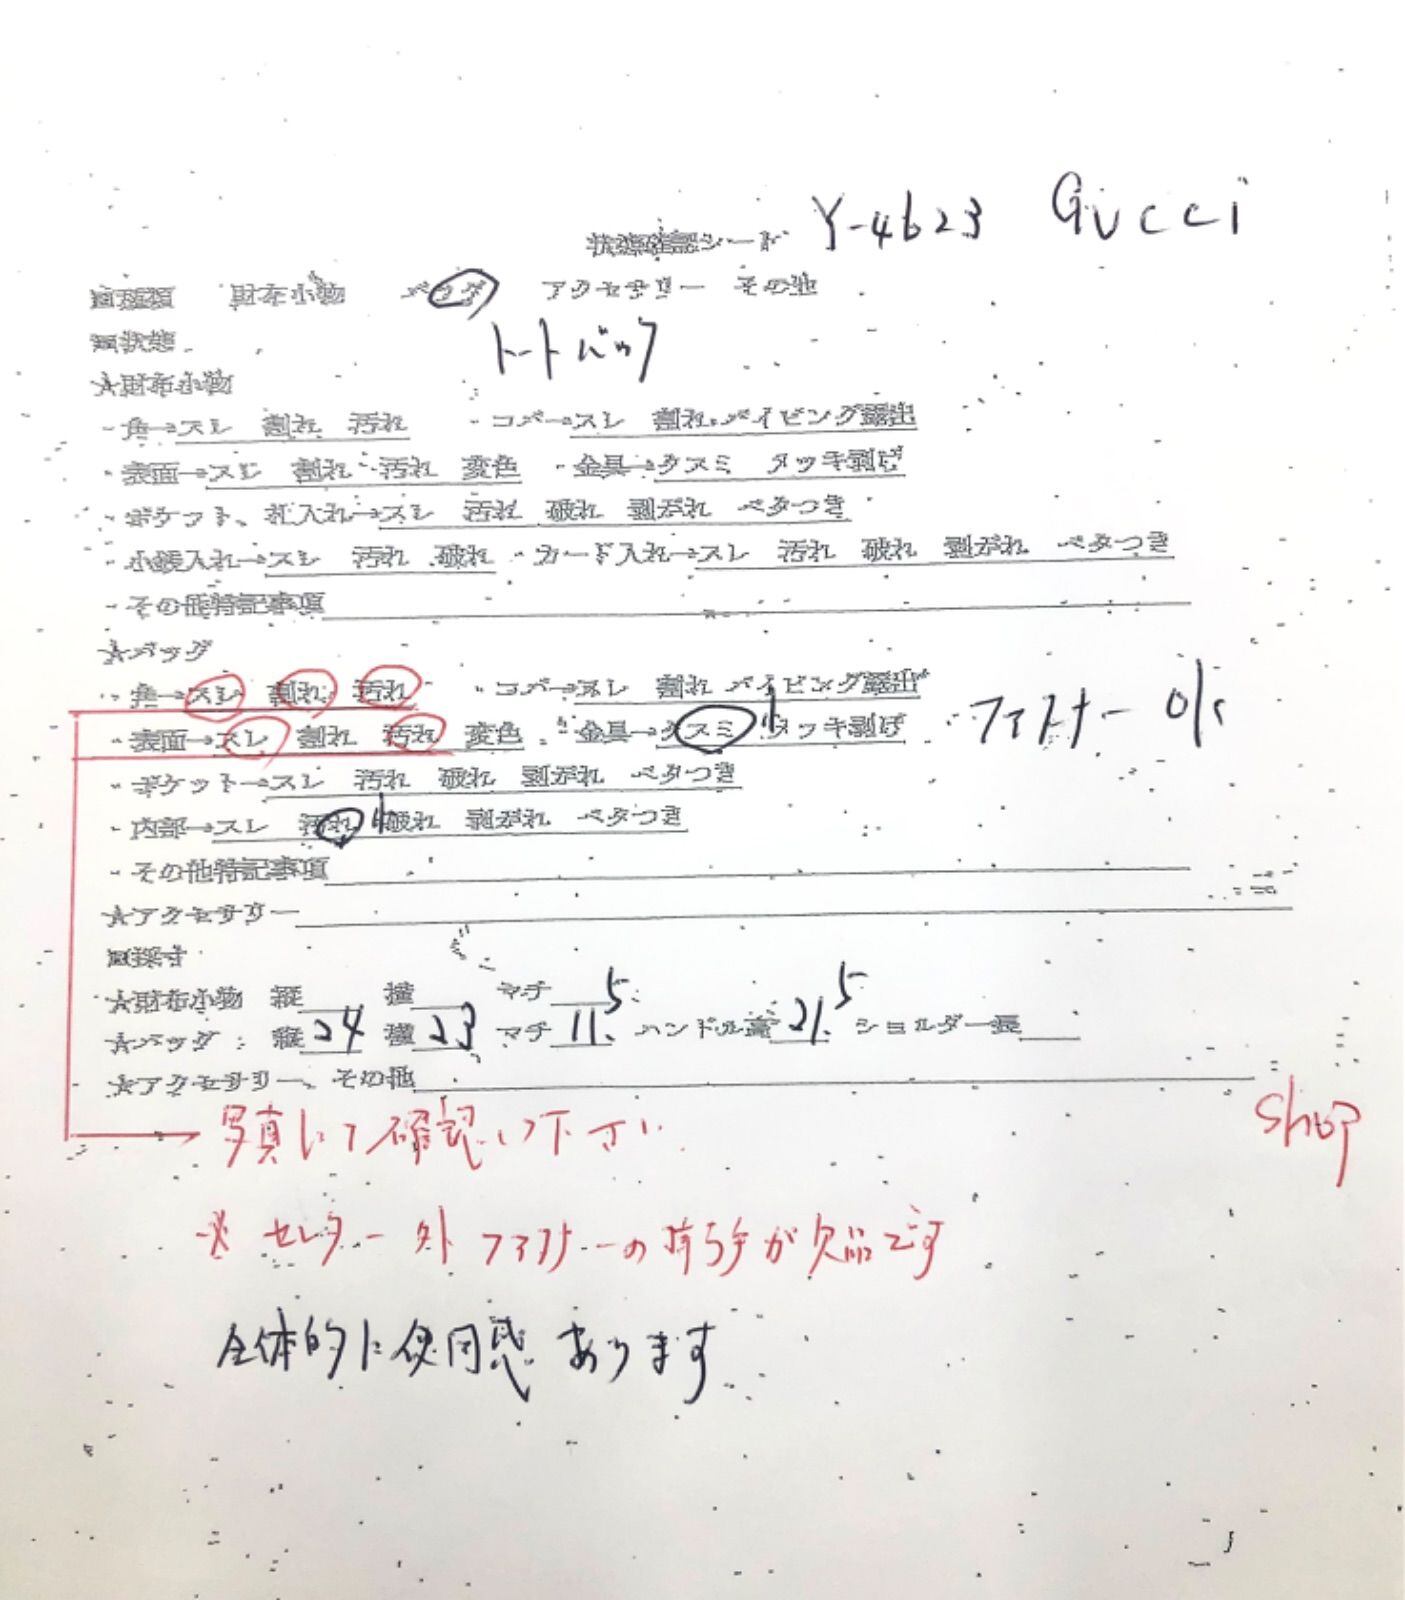 状態確認シート Y-4623 GUCCI
■種類 財布小物 バッグ アクセサリー その他
■状態
トートバッグ
★財布小物
・角→スレ 割れ 汚れ ・コバ→スレ 割れ パイピング露出
・表面→スレ 割れ 汚れ 変色 ・金具→クスミ メッキ剥げ
・ポケット、札入れ→スレ 汚れ 破れ 剥がれ ベタつき
・小銭入れ→スレ 汚れ 破れ ・カード入れ→スレ 汚れ 破れ 剥がれ ベタつき
・その他特記事項
★バッグ
・角→スレ 割れ 汚れ ・コバ→スレ 割れ パイピング露出
・表面→スレ 割れ 汚れ 変色 ・金具→クスミ 小 メッキ剥げ ファスナー O/K
・ポケット→スレ 汚れ 破れ 剥がれ ベタつき
・内部→スレ 汚れ 小 破れ 剥がれ ベタつき
・その他特記事項
★アクセサリー
■採寸
★財布小物 縦 横 マチ
★バッグ 縦 24 横 23 マチ 11.5 ハンドル高 21.5 ショルダー長
★アクセサリー、その他
写真にて確認して下さい shop
※ センター 外 ファスナーの持ち手が欠品です
全体的に使用感あります